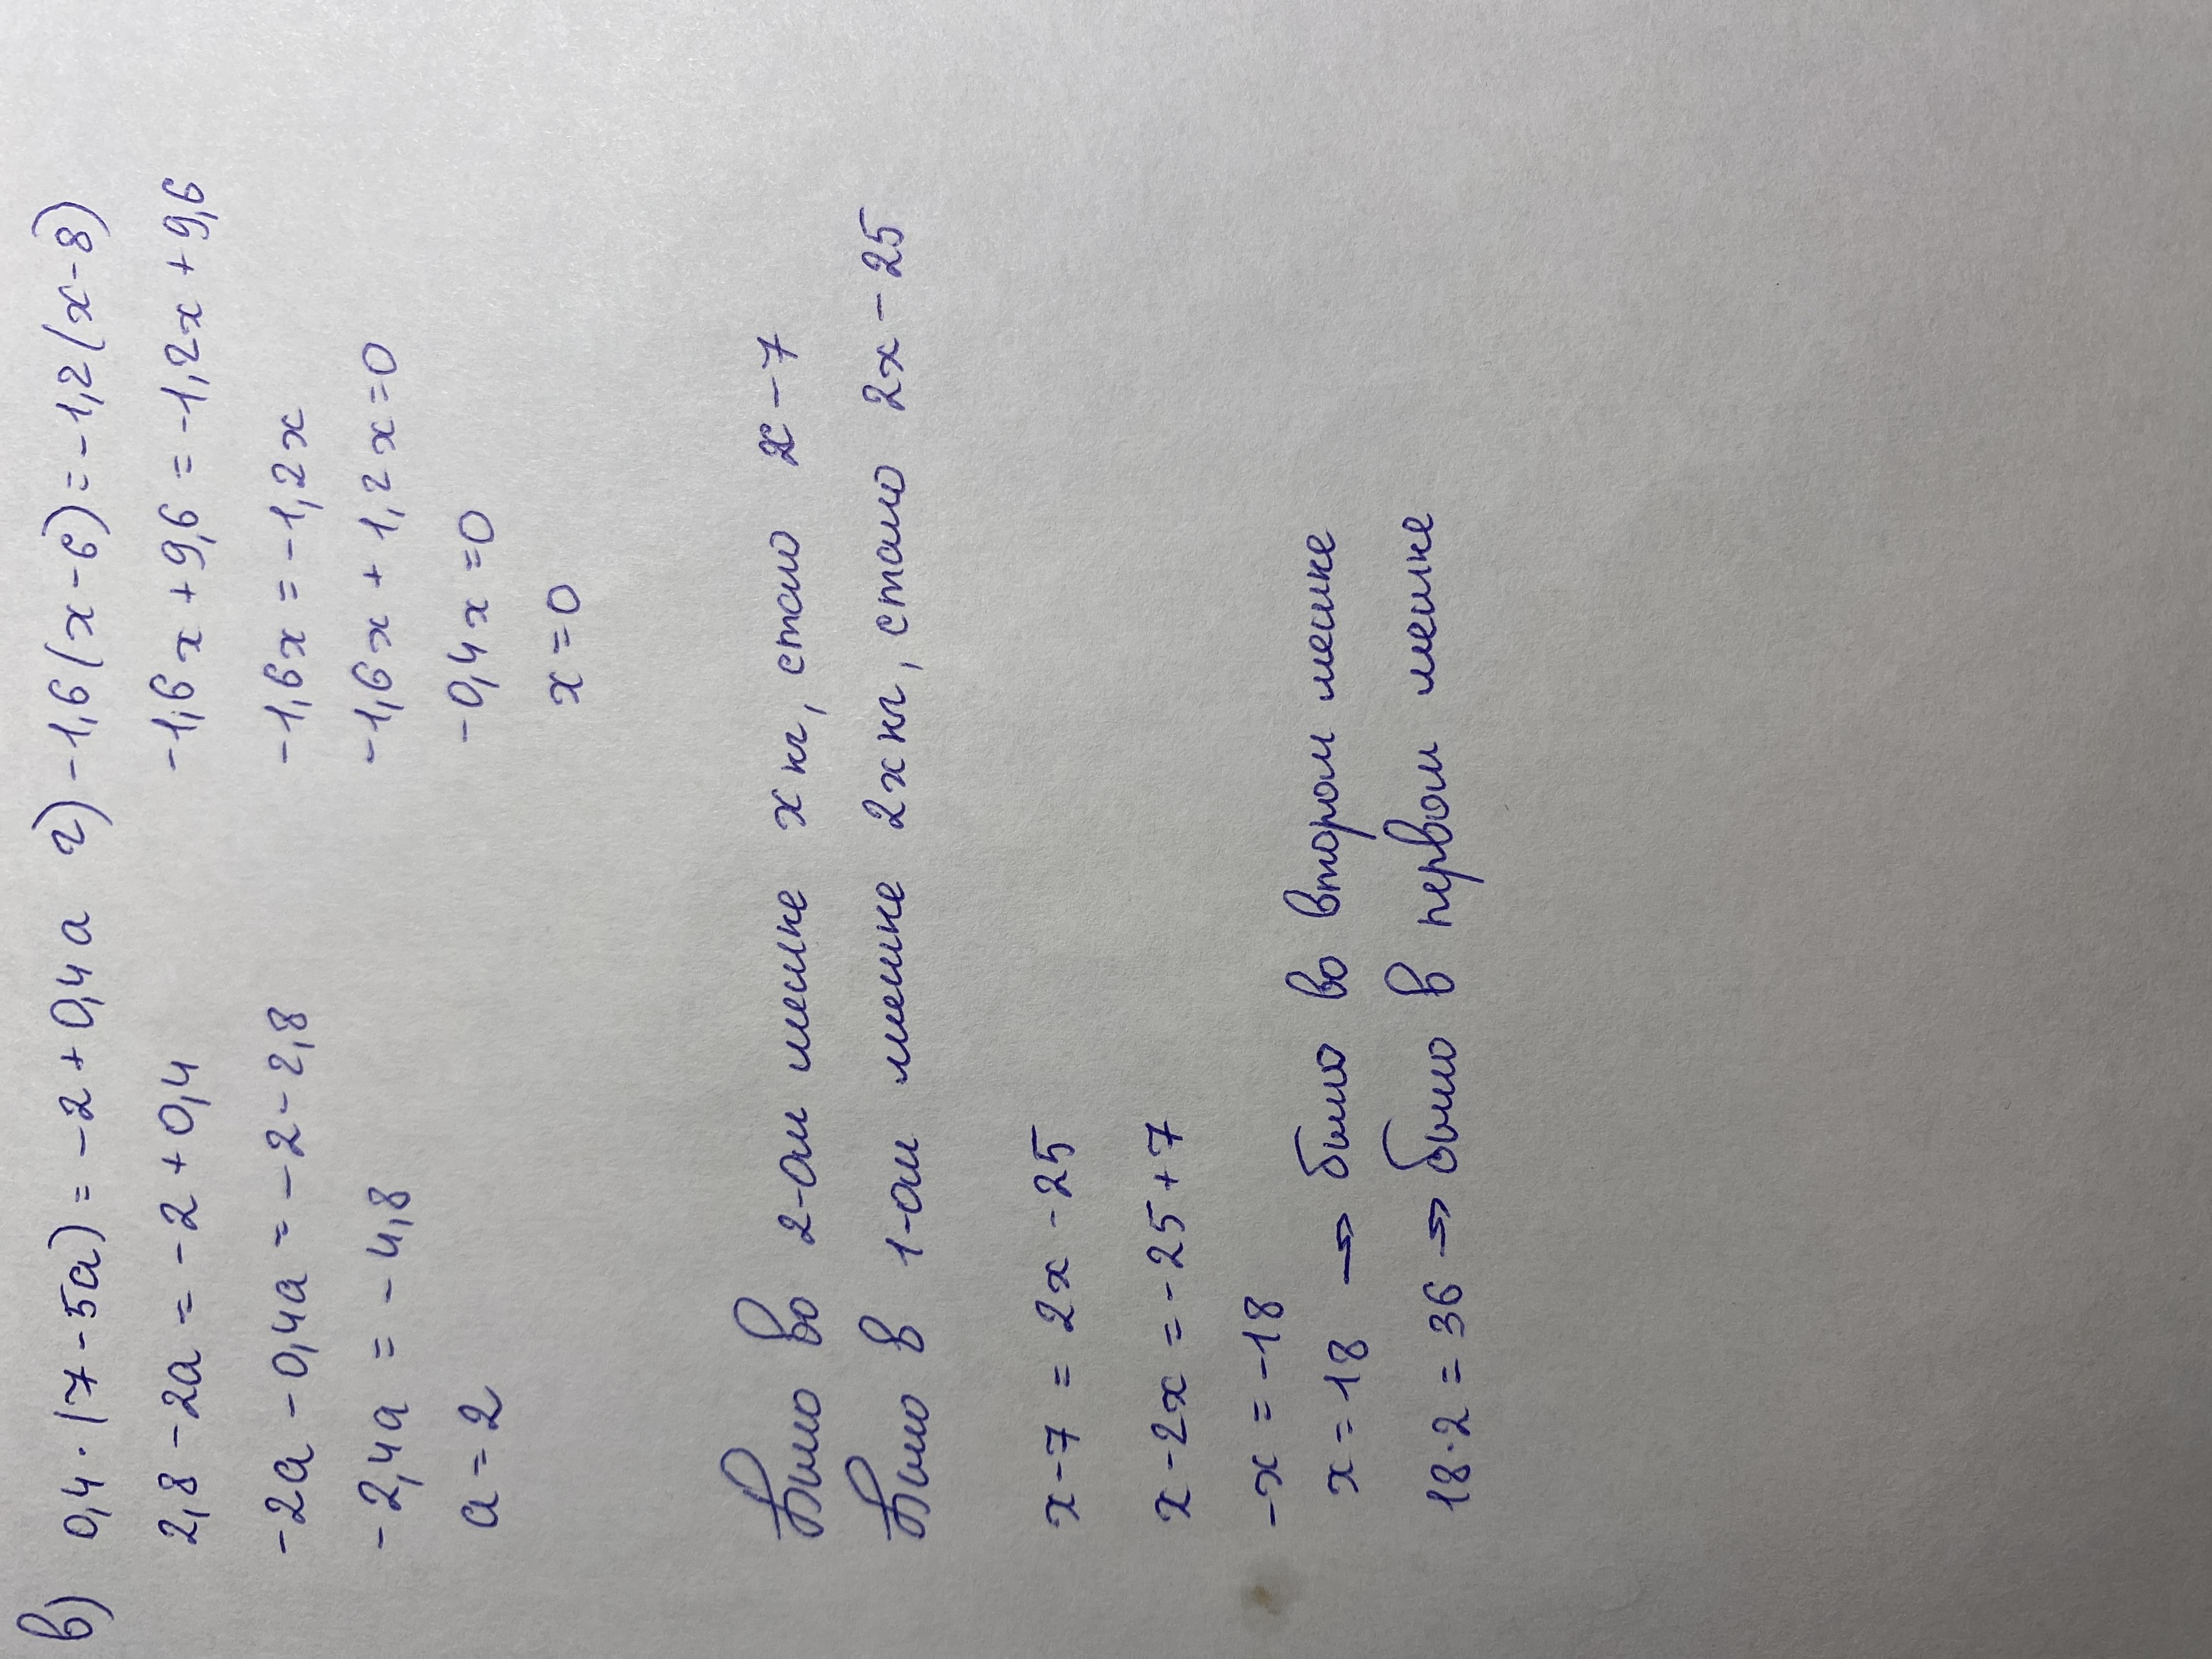 в) 0,4 · (7 - 5a) = -2 + 0,4a
2,8 - 2a = -2 + 0,4
-2a - 0,4a = -2 - 2,8
-2,4a = -4,8
a = 2
г) -1,6(x - 6) = -1,2(x - 8)
-1,6x + 9,6 = -1,2x + 9,6
-1,6x = -1,2x
-1,6x + 1,2x = 0
-0,4x = 0
x = 0
Было во 2-ом мешке x кг, стало x - 7
Было в 1-ом мешке 2x кг, стало 2x - 25
x - 7 = 2x - 25
x - 2x = -25 + 7
-x = -18
x = 18 → было во втором мешке
18 · 2 = 36 → было в первом мешке